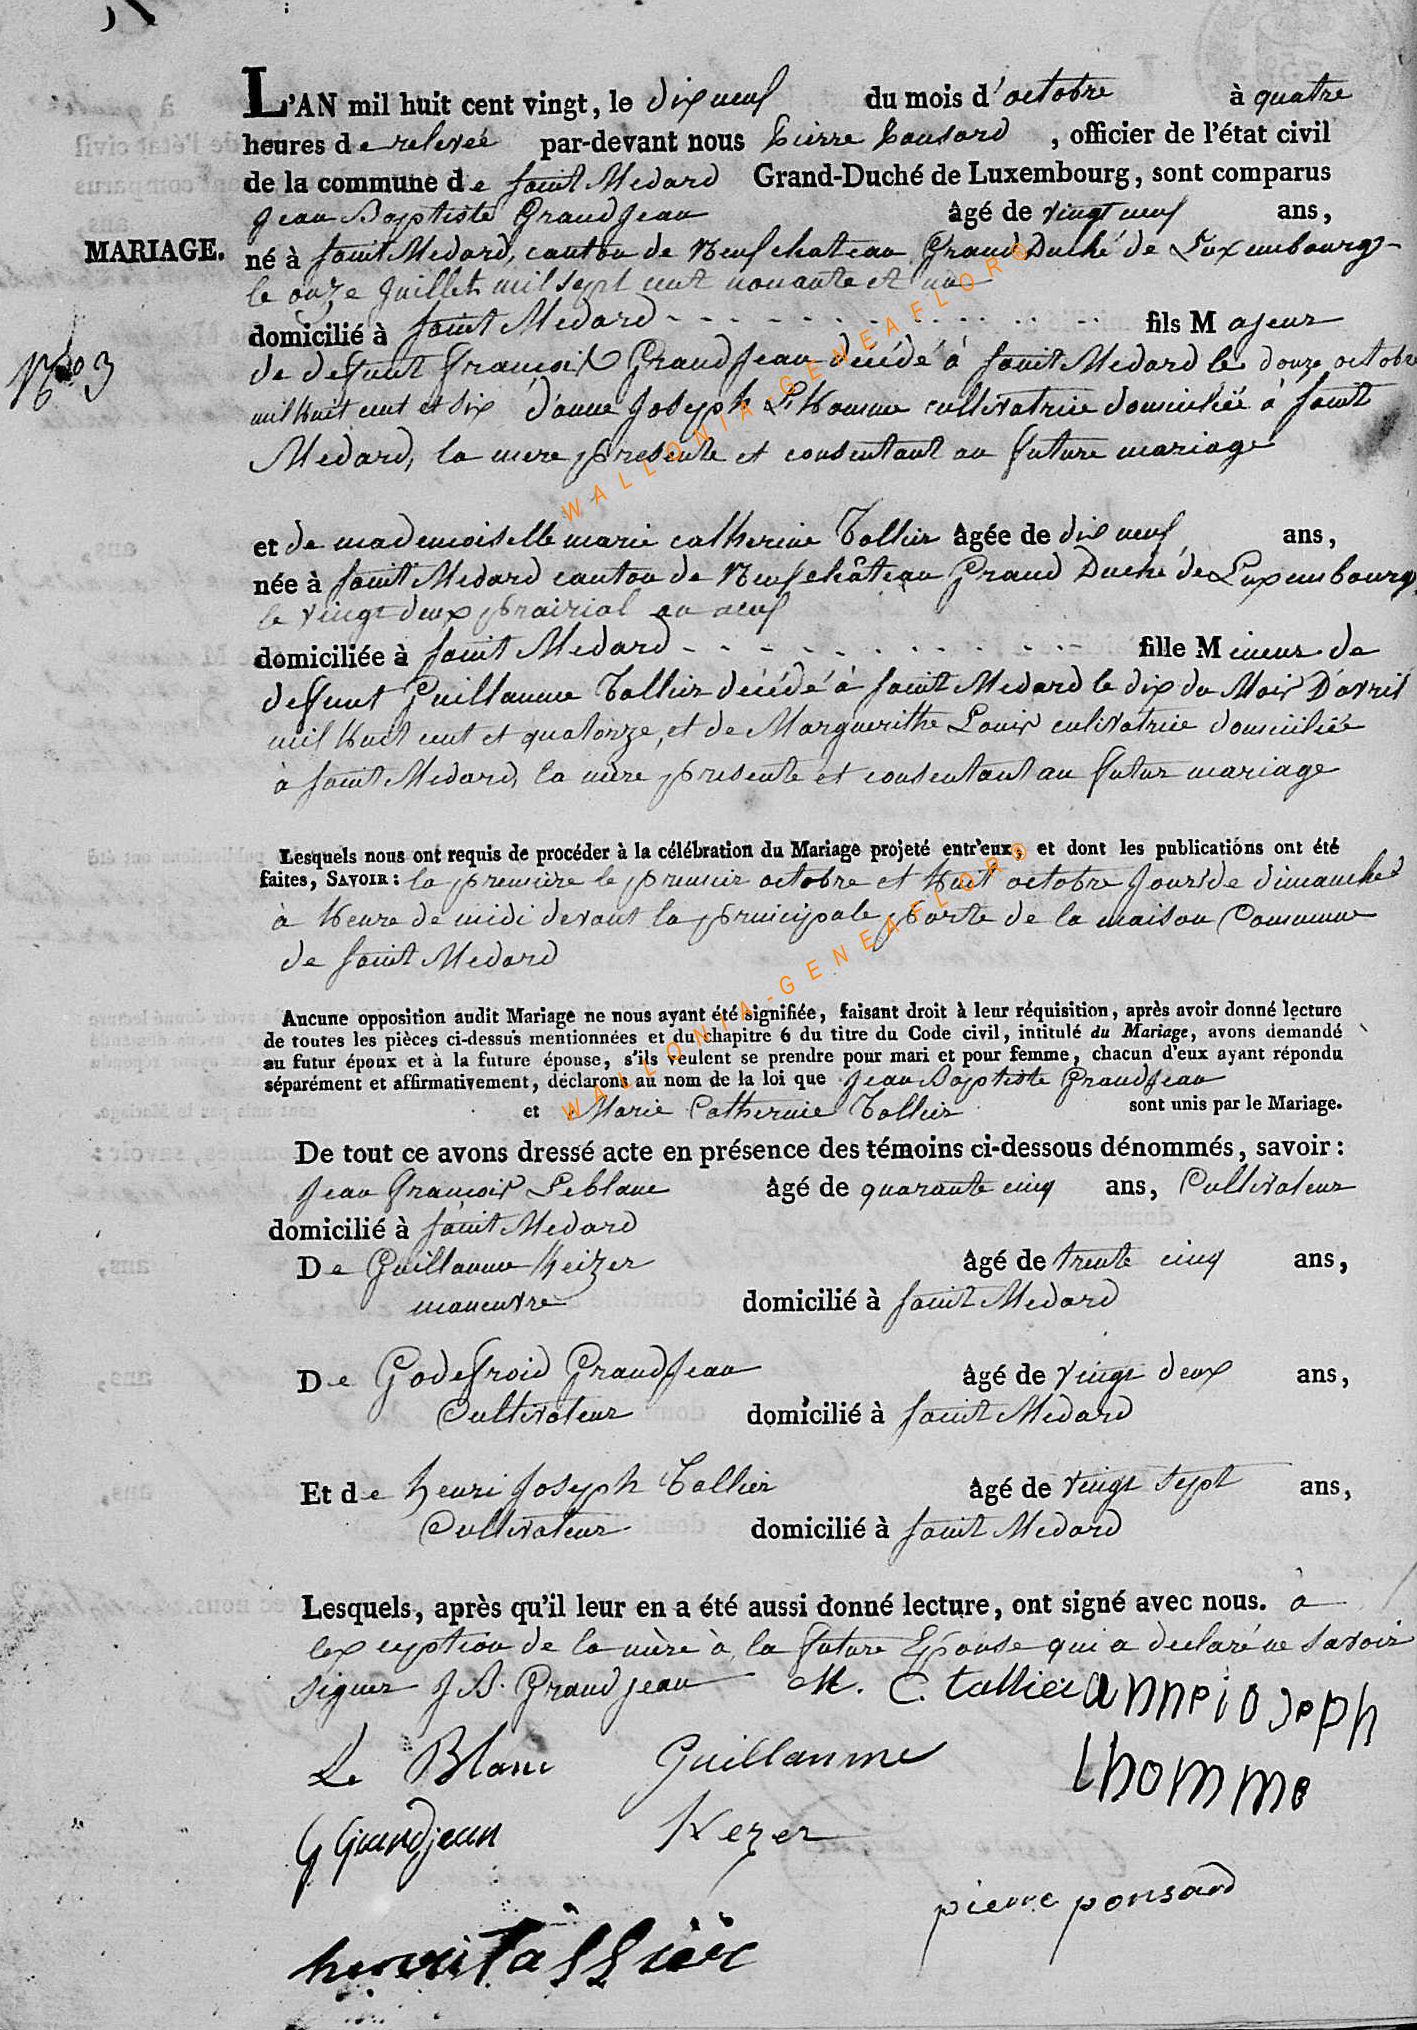 L'AN mil huit cent vingt, le dix neuf du mois d'octobre à quatre
heures de relevée par-devant nous Pierre Ponsard, officier de l'état civil
de la commune de Saint Medard Grand-Duché de Luxembourg, sont comparus
Jean Baptiste Grandjean âgé de vingt neuf ans,
MARIAGE.
né à Saint Medard, canton de Neufchateau Grand Duché de Luxembourg
le onze Juillet mil sept cent nonante et un
domicilié à Saint Medard fils Majeur
No 3
de defunt François Grandjean décédé à Saint Medard le douze octobre
mil huit cent et six d'anne Joseph L'Homme cultivatrice domiciliée à Saint
Medard, la mere presente et consentant au future mariage
et de mademoiselle marie catherine Tallier âgée de dix neuf ans,
née à Saint Medard canton de Neufchâteau Grand Duché de Luxembourg,
le vingt deux prairial an neuf
domiciliée à Saint Medard fille Mineur de
defunt Guillaume Tallier décédé à Saint Medard le dix du Mois D'avril
mil huit cent et quatorze, et de Marguerithe Louis cultivatrice domiciliée
à Saint Medard, la mère presente et consentant au futur mariage
Lesquels nous ont requis de procéder à la célébration du Mariage projeté entr'eux, et dont les publications ont été
faites, SAVOIR: la premiere le premier octobre et huit octobre Jours de dimanches
à heure de midi devant la principale porte de la maison Commune
de Saint Medard
Aucune opposition audit Mariage ne nous ayant été signifiée, faisant droit à leur réquisition, après avoir donné lecture
de toutes les pièces ci-dessus mentionnées et du chapitre 6 du titre du Code civil, intitulé du Mariage, avons demandé
au futur époux et à la future épouse, s'ils veulent se prendre pour mari et pour femme, chacun d'eux ayant répondu
séparément et affirmativement, déclarons au nom de la loi que Jean Baptiste Grandjean
et Marie Catherine Tallier sont unis par le Mariage.
De tout ce avons dressé acte en présence des témoins ci-dessous dénommés, savoir:
Jean François Leblanc âgé de quarante cinq ans, Cultivateur
domicilié à Saint Medard
De Guillaume Keizer âgé de trente cinq ans,
maneuvre domicilié à Saint Medard
De Godefroid Grandjean âgé de vingt deux ans,
Cultivateur domicilié à Saint Medard
Et de henri Joseph Tallier âgé de vingt sept ans,
Cultivateur domicilié à Saint Medard
Lesquels, après qu'il leur en a été aussi donné lecture, ont signé avec nous. à
lexception de la mère à la future Epouse qui a declaré ne savoir
signer J B. Grandjean M. C. tallier anne ioseph
lhomme
Le Blanc Guillaume
Kezer
G Grandjean
pierre ponsard
henri tallier
WALLONIA-GENEAFLOR®
WALLONIA-GENEAFLOR®